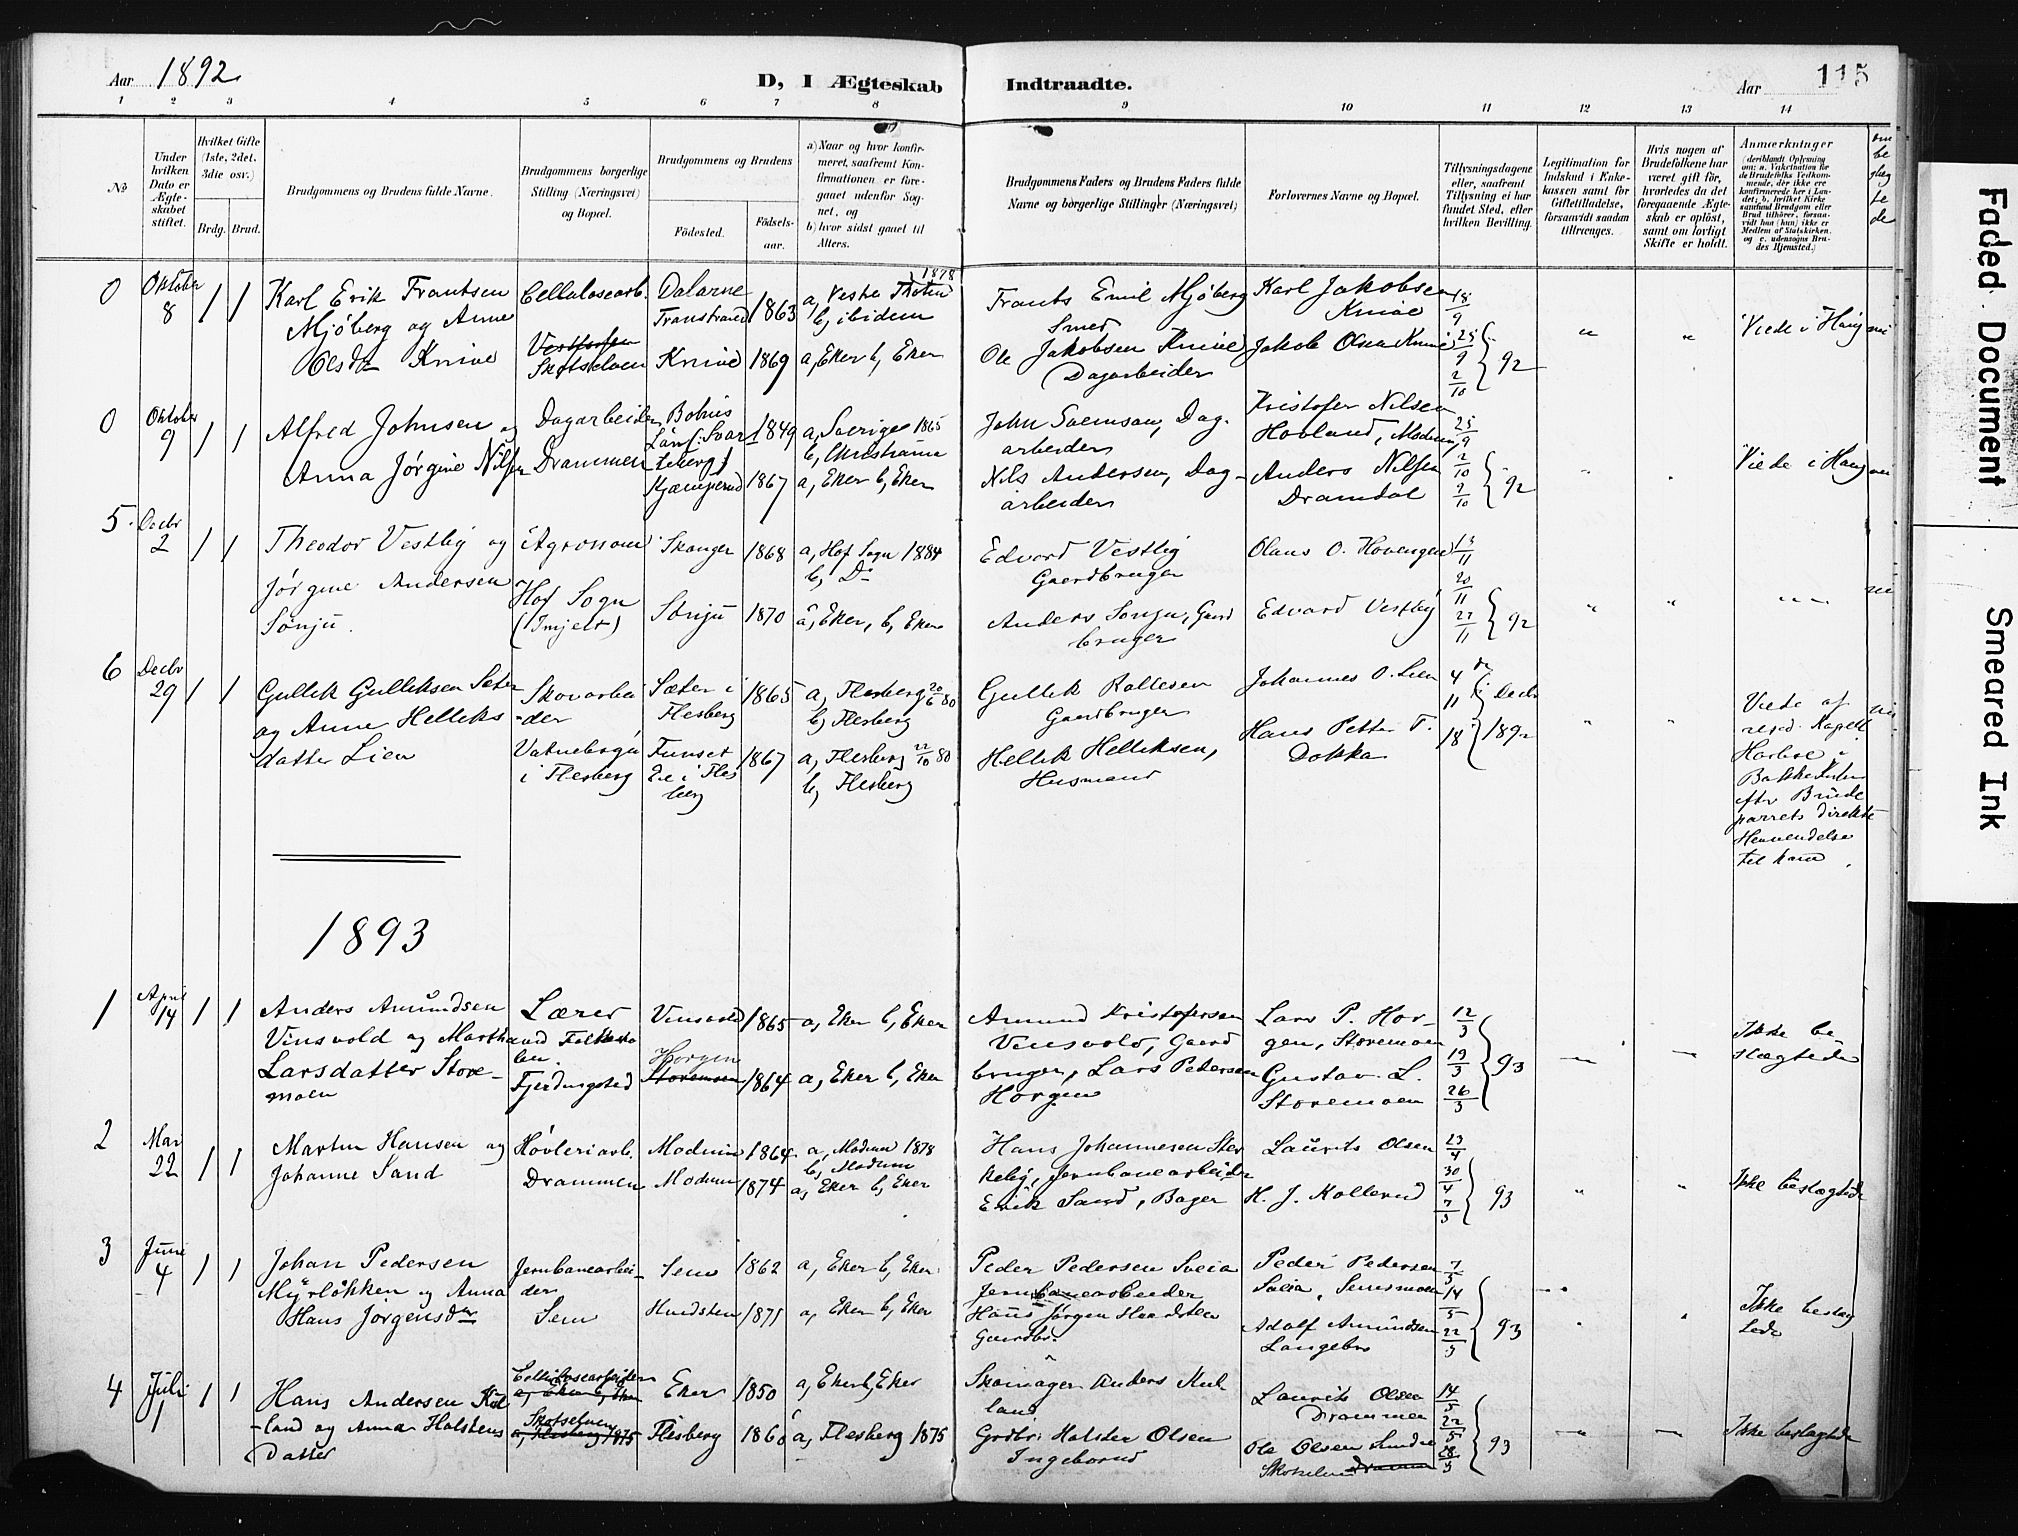 Aar 1892
D, I Ægteskab Indtraadte.
Aar 115
1 2 3 4 5 6 7 8 9 10 11 12 13 14
No
Under hvilken Dato er Ægteskabet stiftet.
Hvilket Gifte (1ste, 2det, 3die osv.)
Brdg. Brud.
Brudgommens og Brudens fulde Navne.
Brudgommens borgerlige Stilling (Næringsvei) og Bopæl.
Brudgommens og Brudens
Födested. Födselsaar.
a) Naar og hvor konfirmeret, saafremt Konfirmationen er foregaaet udenfor Sognet, og
b) hvor sidst gaaet til Alters.
Brudgommens Faders og Brudens Faders fulde Navne og borgerlige Stillinger (Næringsvei)
Forlovernes Navne og Bopæl.
Tillysningsdagene eller, saafremt Tillysning ei har fundet Sted, efter hvilken Bevilling.
Legitimation for Indskud i Enkekassen samt for Giftetilladelse, forsaavidt saadan tiltrænges.
Hvis nogen af Brudefolkene har været gift för, hvorledes da det foregaaende Ægteskab er oplöst, samt om lovligt Skifte er holdt.
Anmerkninger
(deriblandt Oplysning om: a. Vakcination for de Brudefolks Vedkommende, der ikke ere konfirmerede her i Landet; b. hvilket Kirkesamfund Brudgom eller Brud tilhörer, forsaavidt han (hun) ikke er Medlem af Statskirken. og c. udensogns Brudes Hjemsted.)
om be slæg te de
0 Oktober 8 1 1
Karl Erik Frantsen
Mjöberg og Anne
Olsdr Knive
Cellulosearb.
Vestfossen
Skotselven
Dalarne
Transtrand 1863
Knive 1869
a, Vestre Thoten 1878
b, ibidem
a, Eker b, Eker
Frants Emil Mjöberg
Smed
Ole Jakobsen Knive
Dagarbeider
Karl Jakobsen
Knive
Jakob Olsen Knive
18/9
25/9
2/10 92
" "
Viede i Haug nei
0 Oktober 9 1 1
Alfred Johnsen og
Anna Jørgine Nilsen
Dagarbeider
Drammen
Bohus
Län (: Svarteberg) 1849
Kjæmperud 1867
a, Sverige 1865
b, Christiania
a, Eker b, Eker
John Svensson, Dagarbeider
Nils Andersen, Dagarbeider
Kristofer Nilsen
Hovland, Modum,
Anders Nilsen
Dramdal
25/9
2/10
9/10 92
Viede i Haug nei
5. Decbr 2 1 1
Theodor Vestby og
Jørgine Andersen
Sønju.
Agronom
Hof Sogn
Skanger 1868
Sønju 1870
a, Hof Sogn 1884
b, Do
a, Eker, b, Eker
Edvard Vestby
Gaardbruger
Anders Sønju, Gaardbruger
Olaus O. Hovengen
Edvard Vestby
13/11
20/11
27/11 92
" " " nei
6 Decbr 29 1 1
Gullik Gulliksen Sæter
og Anne Helleksdatter Lien
Skovarbeider
i Flesberg
Sæter i
Flesberg 1865
1867
a, Flesberg 20/6 80
b, Flesberg
a, Flesberg 22/10 80
b, Flesberg
Gullik
Gaardbruger
Hellik Helliksen,
Husmand
Johannes O. Lien
Hans Petter T.
Dokka
4de
11 Decbr
18 1892
" "
Viede af
resid. Kapell.
efter Brudeparrets direkte
Henvendelse
til ham. nei
1893
1 April 14 1 1
Anders Amundsen
Vinsvold og Martha
Larsdatter Storemoen
Lærer
ved Folkeskolen.
Fjerdingstad
Vinsvold 1865
Horgen
Storemoen 1864
a, Eker b, Eker
a, Eker b, Eker
Amund Kristofersen
Vinsvold, Gaardbruger, Lars Petersen
Horgen
Lars P. Horgen, Storemoen
Gustav L.
Storemoen
12/3
19/3
26/3 93
Ikke beslægtede
2 Mai 22 1 1
Martin Hansen og
Johanne Sand
Høvleriarb.
Drammen
Modum 1864
Modum 1874
a, Modum 1878
b, Modum
a, Eker b, Eker
Hans Johannesen
Jernbanearbeider
Erik Sand, Bager
Laurits Olsen
H. J. Kollerud
23/4
30/4
7/5 93
" "
Ikke beslægtede
3 Juni 4 1 1
Johan Pedersen
Myrløkken og Anna
Hans Jørgensdr
Jernbanearbeider
Sem
Sem 1862
Hundsten 1871
a, Eker b, Eker
a, Eker b, Eker
Peder Pedersen Sveia
Jernbanearbeider
Hans Jørgen
Gaardbr.
Peder Pedersen
Sveia, Semsmoen
Adolf Amundsen
Langebro
7/5
14/5
22/5 93
Ikke beslægtede
4 Juli 1 1 1
Hans Andersen Kolland og Anna Holstens
Datter
Cellulosearbeider
a, Eker b, Eker
Skotselven
a, Flesberg 1875
Eker 1850
Flesberg 1860
a, Eker b, Eker
a, Flesberg 1875
Skomager Anders
Grdbr. Holsten Olsen
Ingeborud
Laurits Olsen
Drammen
Ole Olsen
Skotselven Drammen
14/5
22/5
28/5 93
Ikke beslægtede
Faded Document
Smeared Ink